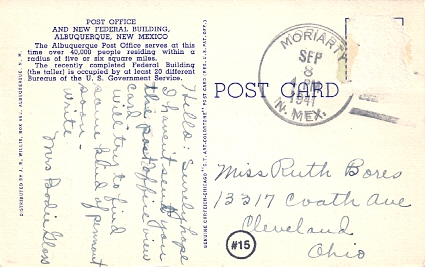 POST OFFICE
AND NEW FEDERAL BUILDING,
ALBUQUERQUE, NEW MEXICO
The Albuquerque Post Office serves at this
time over 40,000 people residing within a
radius of five or six square miles.
The recently completed Federal Building
(the taller) is occupied by at least 20 different
Bureaus of the U. S. Government Service.
Hello: Surely hope
I haven't sent you
this post office view
card
will try to find
some kind of pennant
soon -
Write
Mrs Bodie Glass
DISTRIBUTED BY J. R. WILLIS, BOX 601, ALBUQUERQUE, N. M.
GENUINE CURTEICH-CHICAGO "C.T. ART-COLORTONE" POST CARD (REG. U.S. PAT. OFF.)
POST CARD
MORIARTY
SEP
8
1941
N. MEX.
Miss Ruth Bores
13317 Coath Ave
Cleveland
Ohio
#15